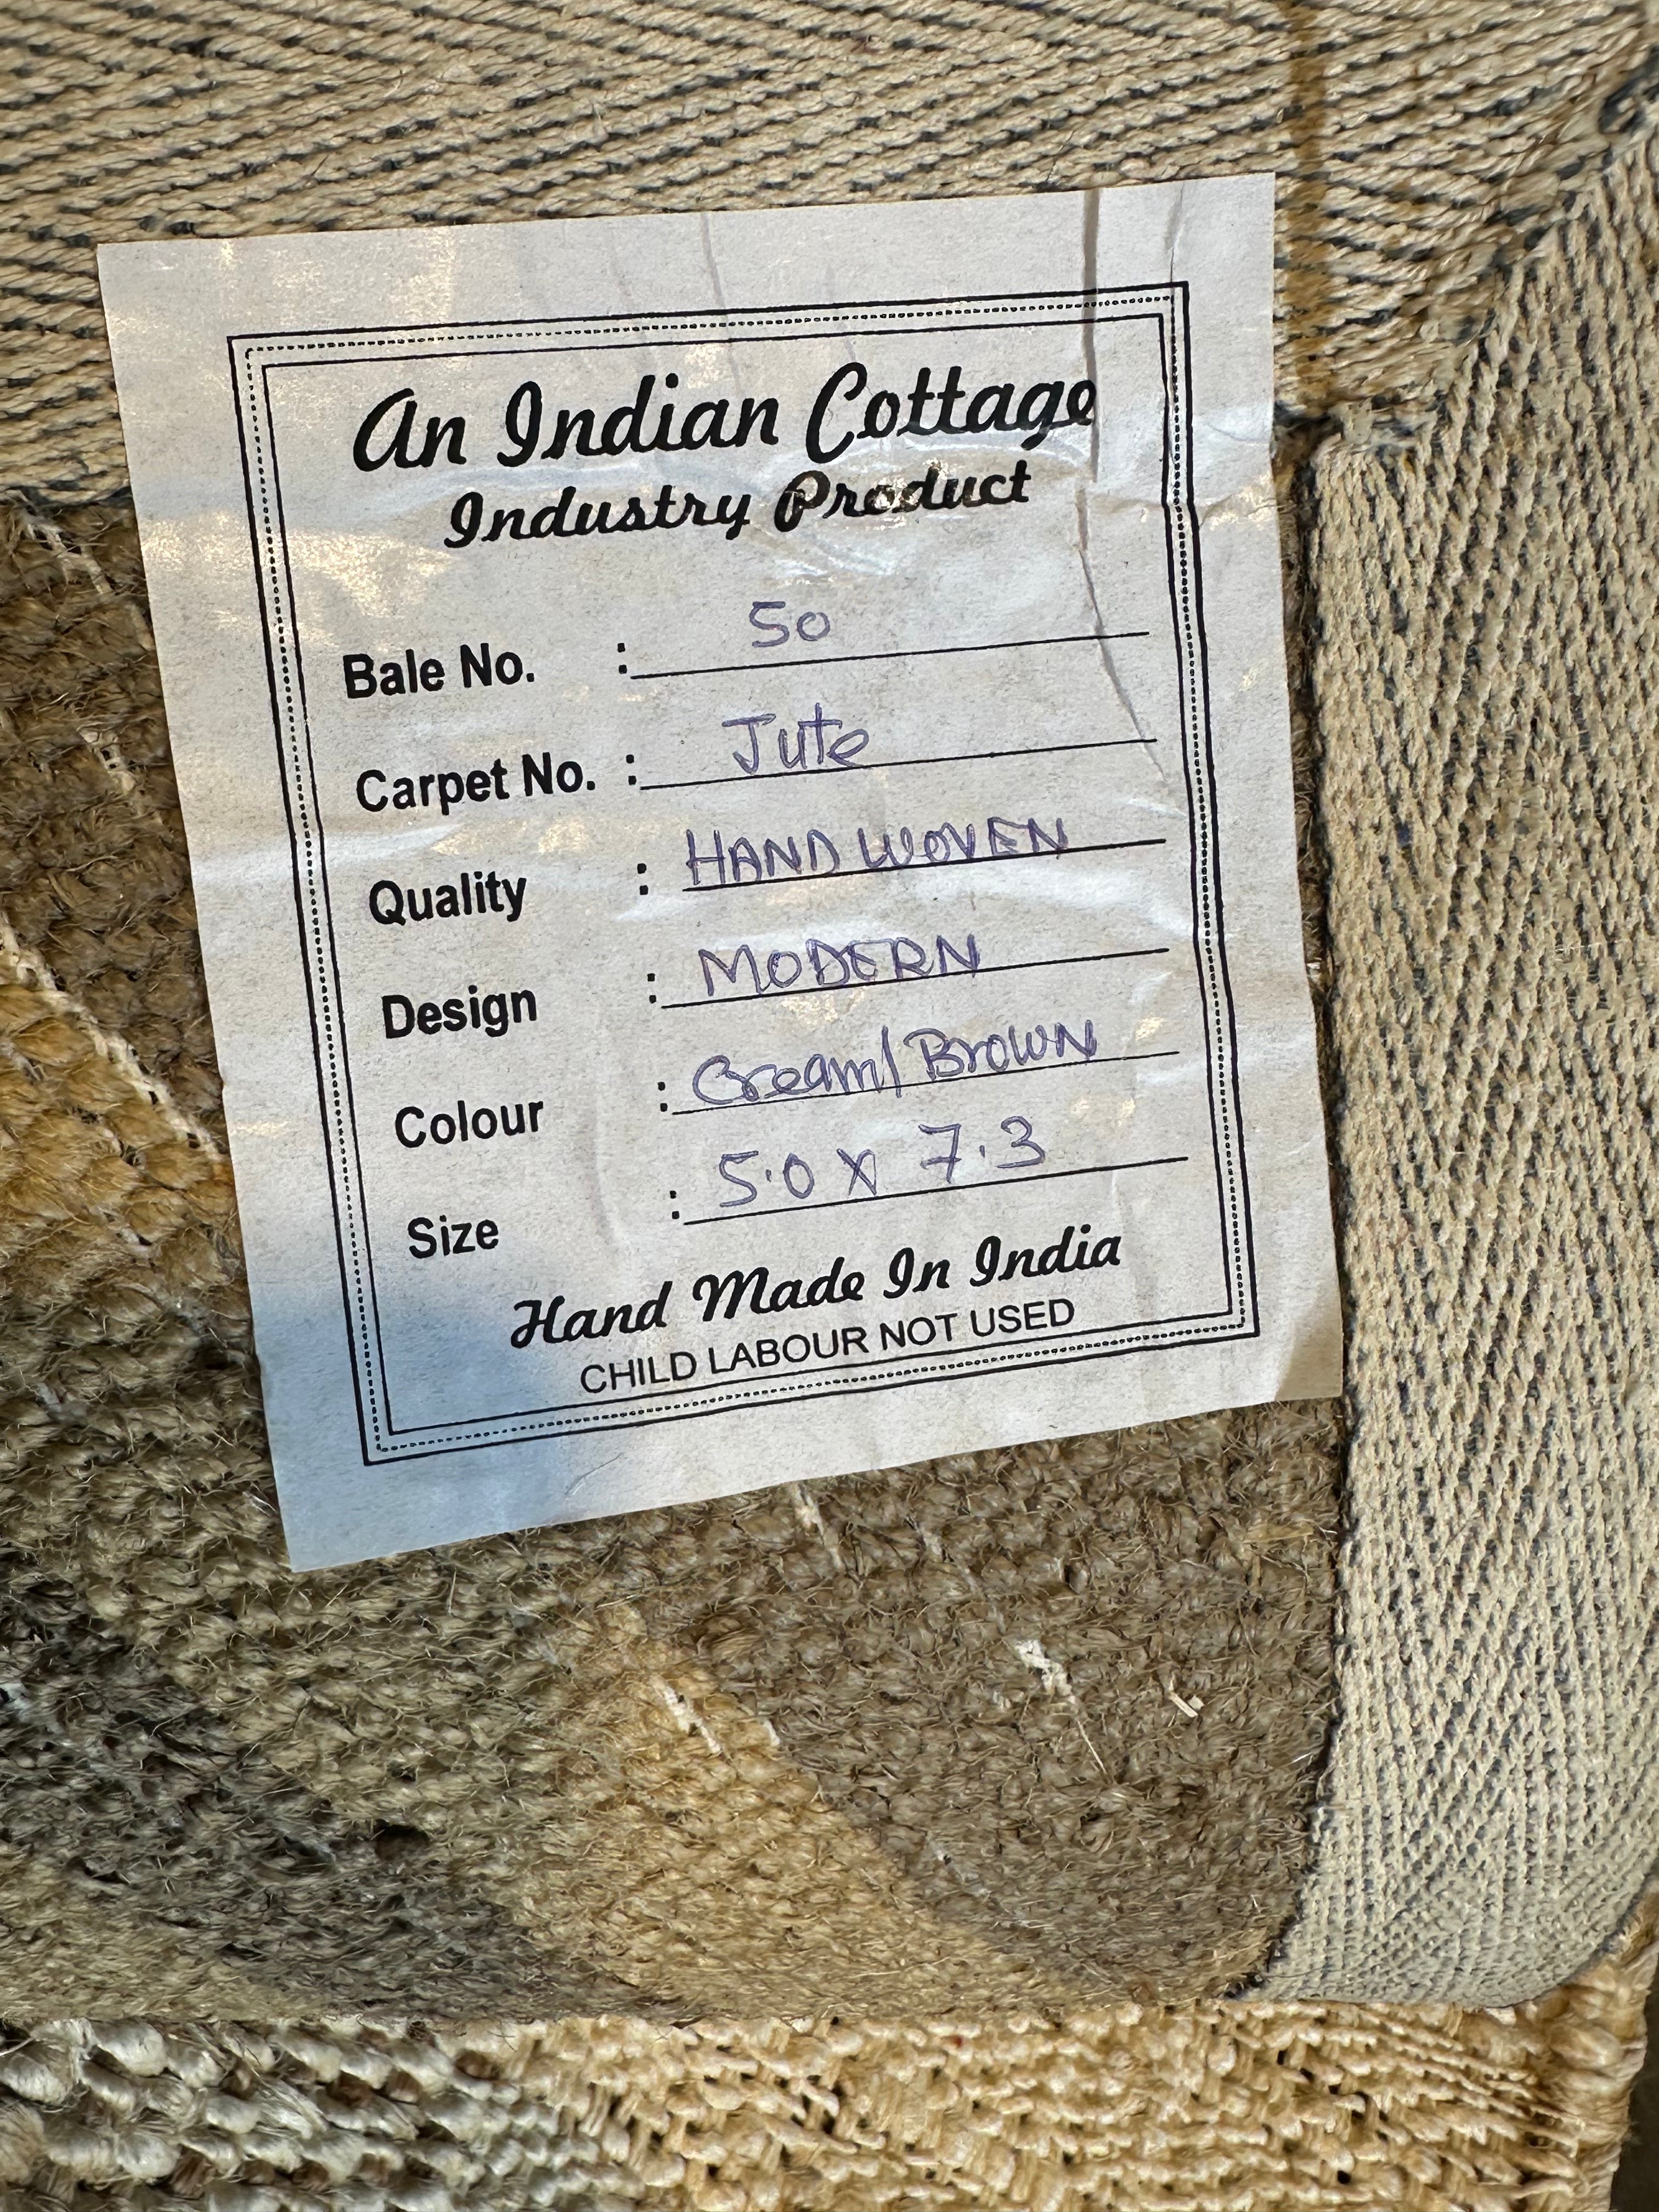 An Indian Cottage
Industry Product
Bale No. : 50
Carpet No. : Jute
Quality : HAND WOVEN
Design : MODERN
Colour : Cream/Brown
Size : 5.0 X 7.3
Hand Made In India
CHILD LABOUR NOT USED